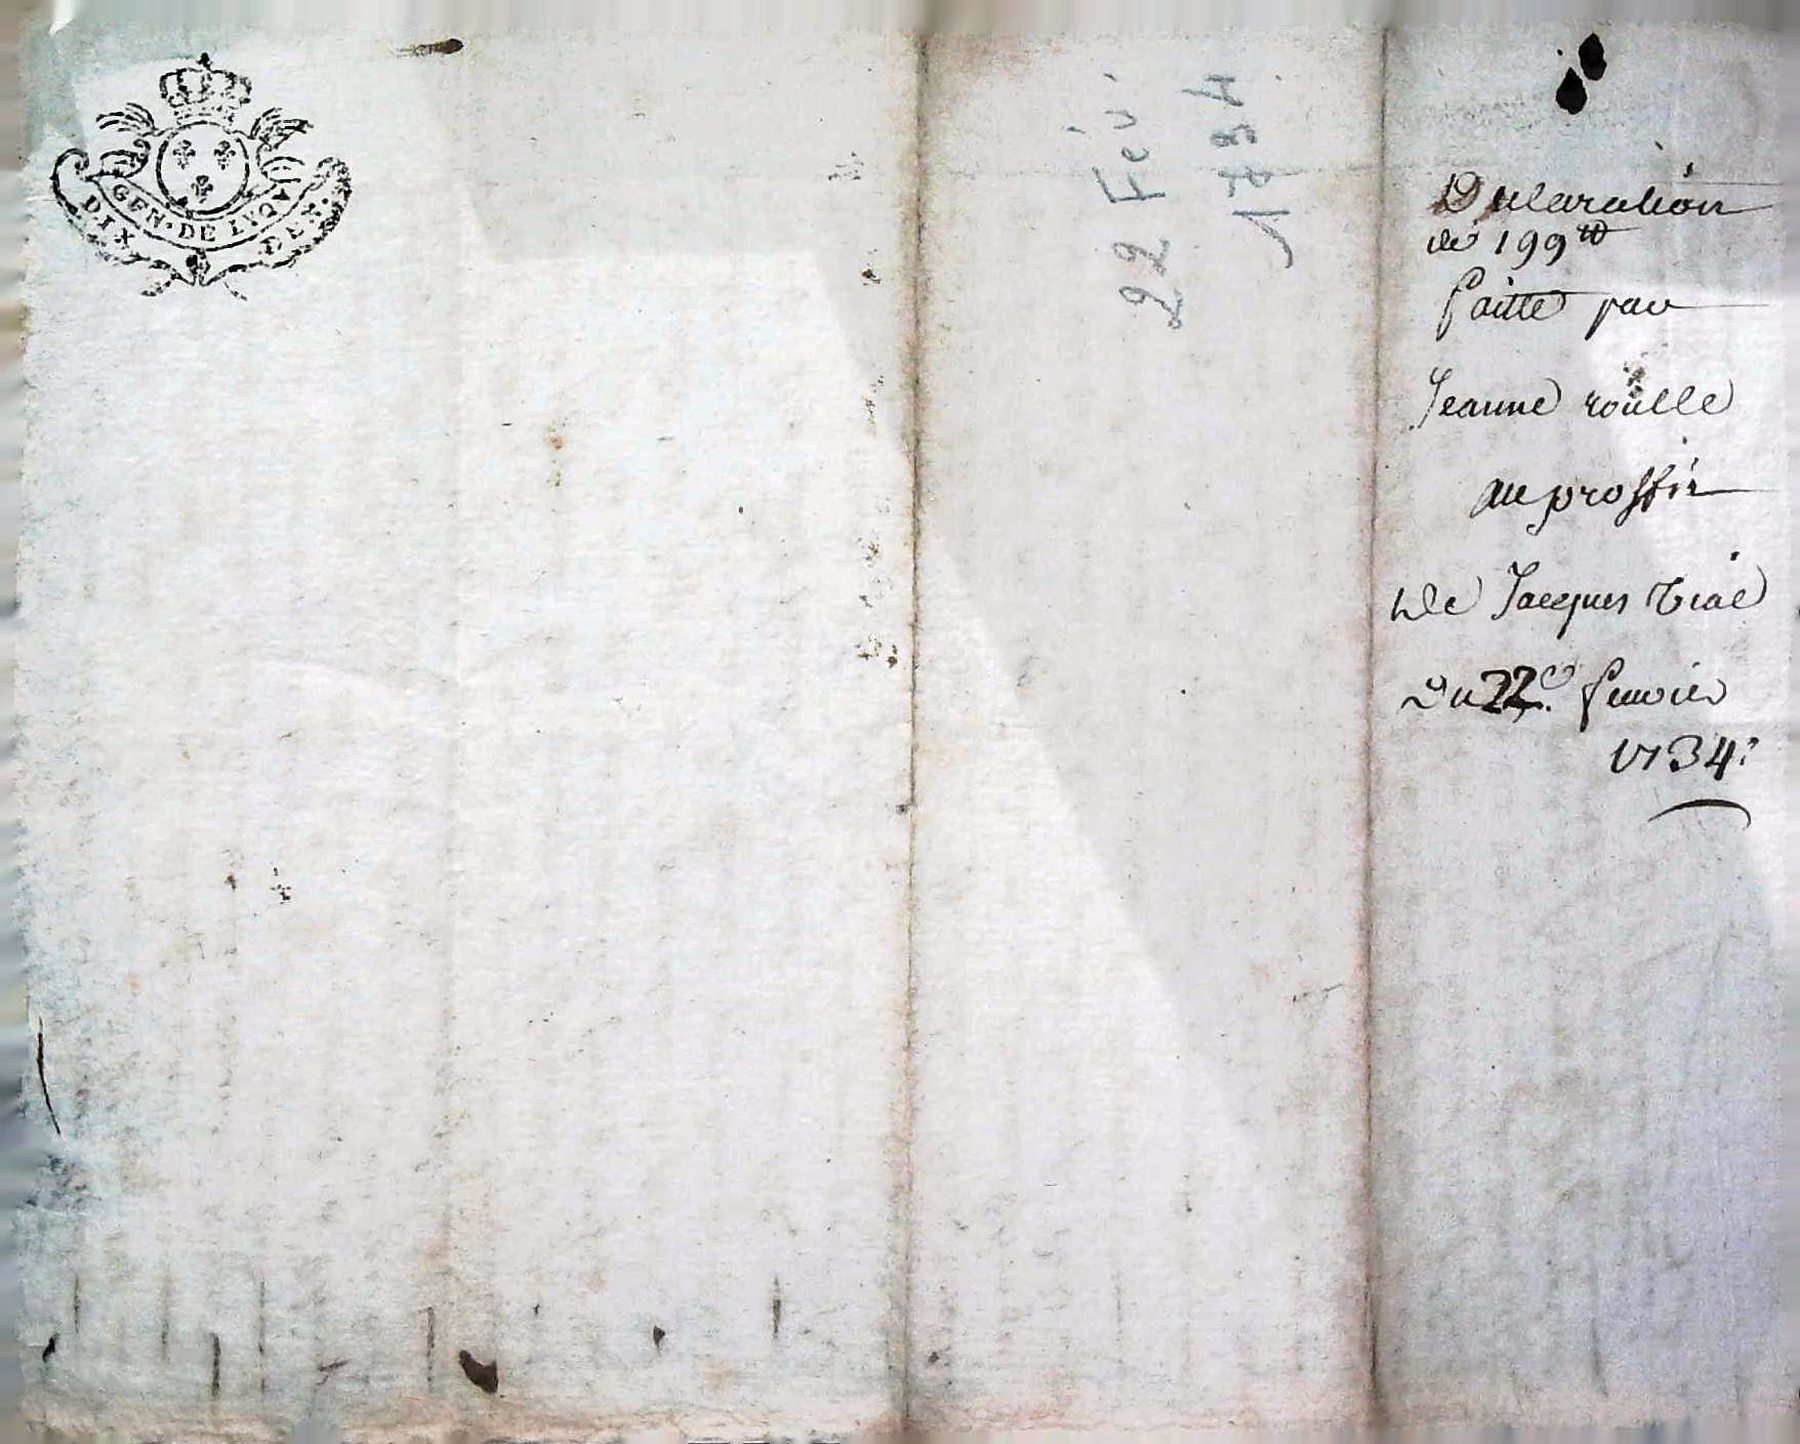 GEN. DE LYON
DIX DEN.
22 Fev.
1734
Declaration
de 199 tt
faitte par
Jeanne roulle
au proffit
De Jacques Vial
Du 22e fevrier
1734.